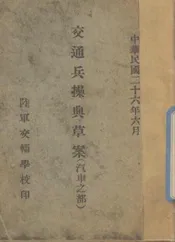 中華民國二十六年六月
交通兵操典草案(汽車之部)
陸軍交輜學校印